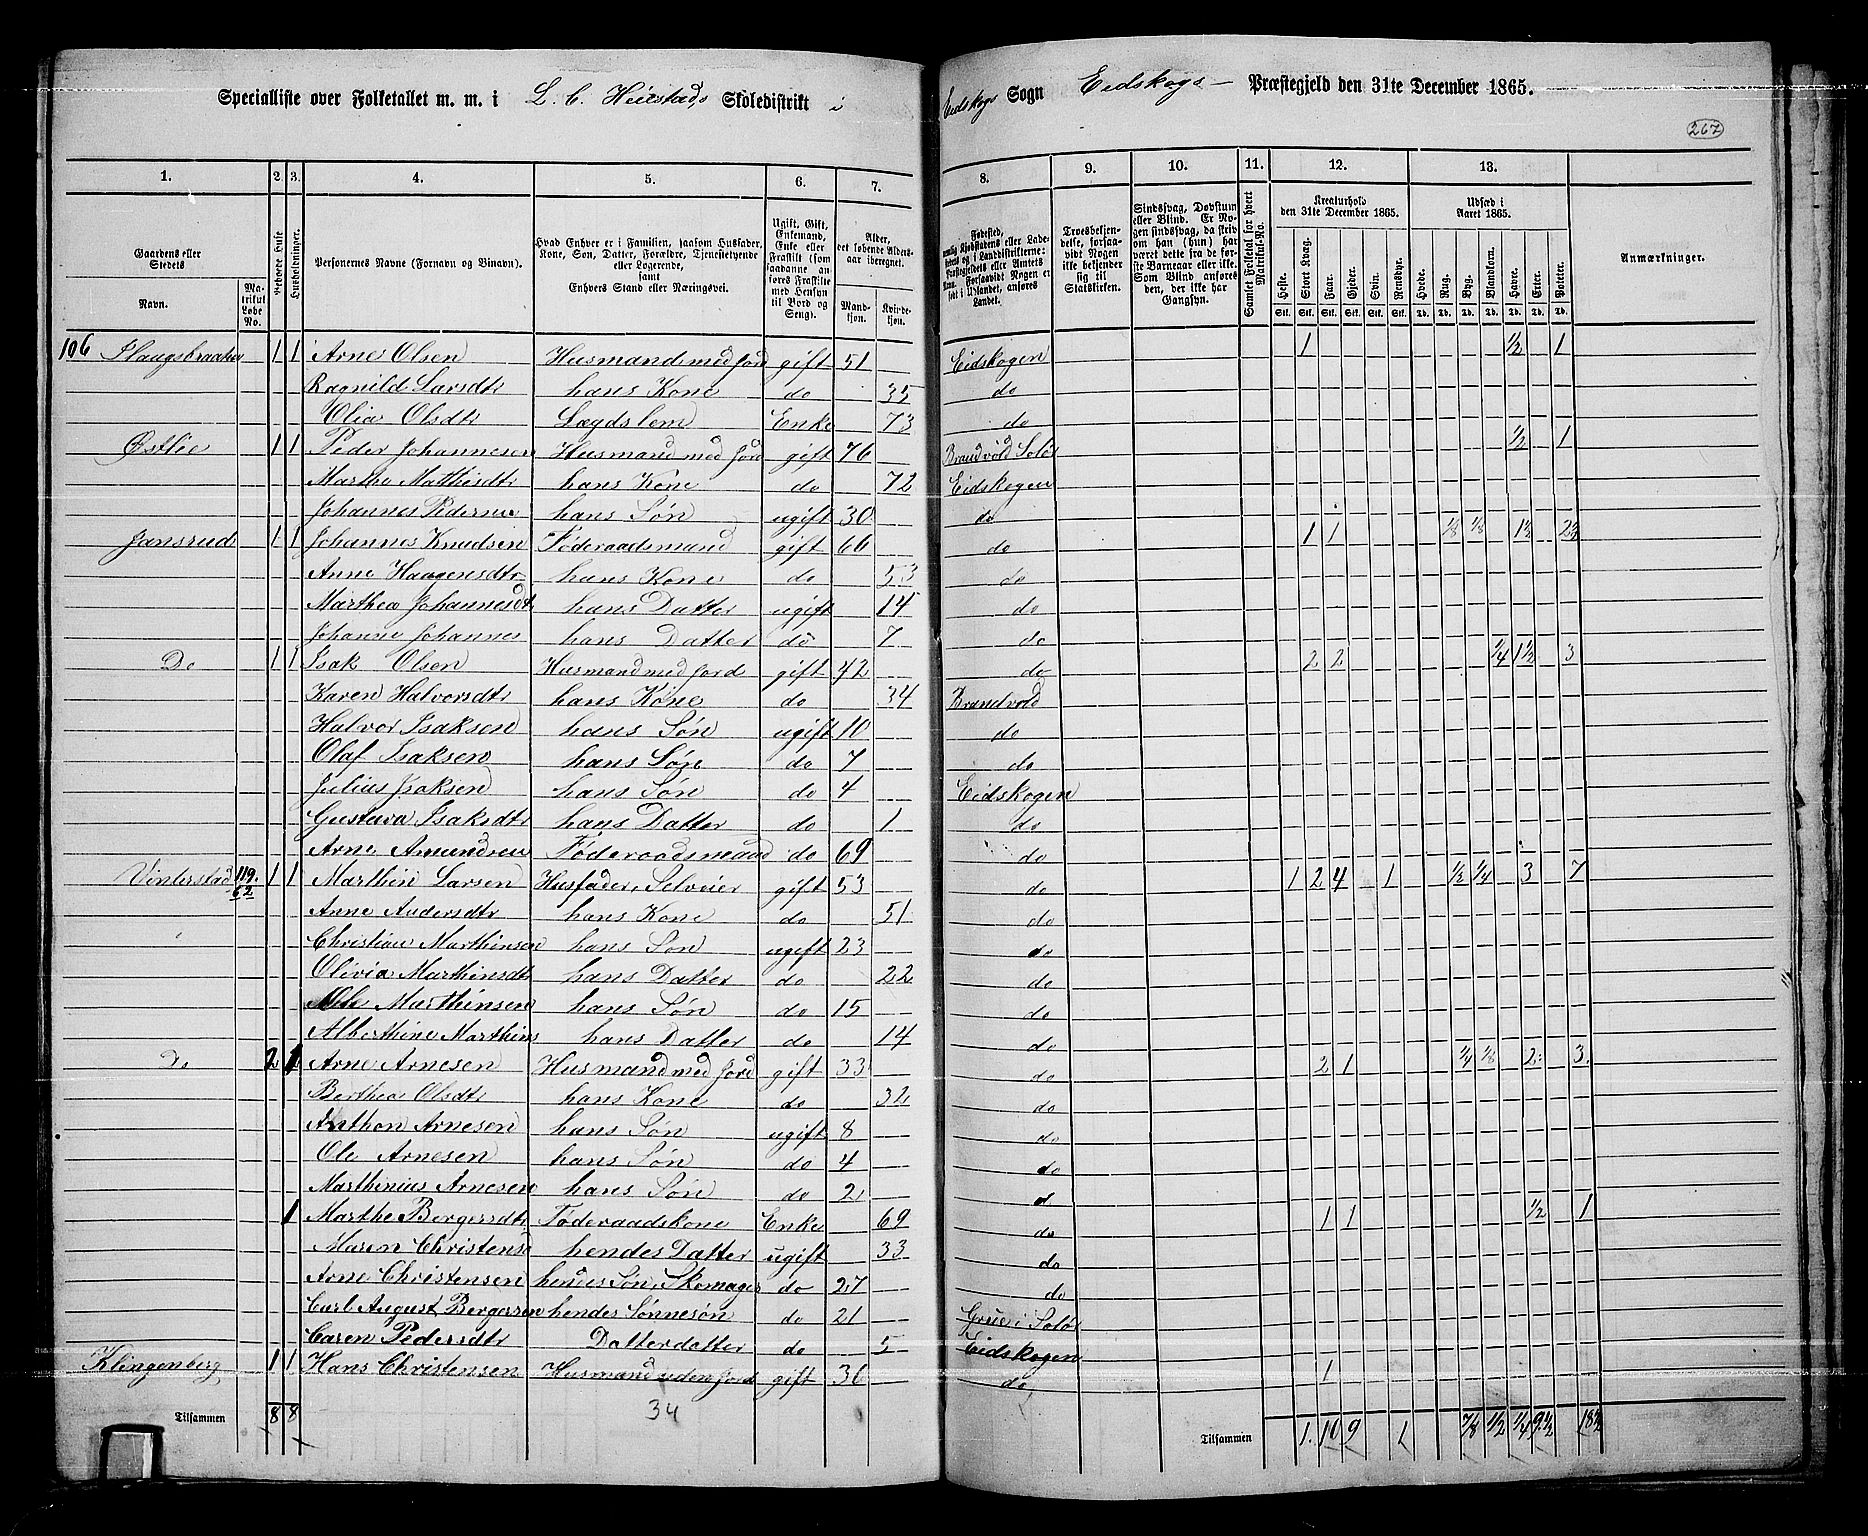 Specialliste over Folketallet m. m. i L. C. Heiestads Skoledistrikt i Eidskogs Sogn Eidskogs Præstegjeld den 31te December 1865.
267
1. 2. 3. 4. 5. 6. 7. 8. 9. 10. 11. 12. 13.
Gaardens eller Stedets Navn. Matrikul Løbe No. Beboede Huse Husholdninger. Personernes Navne (Fornavn og Tilnavn). Hvad Enhver er i Familien, saasom Husfader, Kone, Søn, Datter, Forældre, Tjenestetyende eller Logerende, samt Enhvers Stand eller Næringsvei. Ugift, Gift, Enkemand, Enke eller Fraskilt Alder, det løbende Aldersaar iberegnet. Mandkjøn. Kvindekjøn.
Fødested Troesbekjendelse, forsaavidt Nogen ikke bekjender sig til Statskirken. Samlet Folketal for hvert Matrikul-No. Kreaturhold den 31te December 1865. Udsæd i Aaret 1865. Anmærkninger.
Heste. Stort Kvæg. Faar. Gjeder. Svin. Rensdyr. Hvede. Rug. Byg. Blandkorn. Havre. Erter. Poteter.
106 Haugsbraaten 1 1 Arne Olsen Husmand med Jord gift 51 Eidskogen 1 1/2 1
Ragnild Larsdtr hans Kone do 35 do
Olia Olsdtr Lægdslem Enke 73 do
Østlie 1 1 Peder Johannesen Husmand med Jord gift 76 Brandvold Solør 1/2 1
Marthe Mathisdtr hans Kone do 72 Eidskogen
Johannes Pedersen hans Søn ugift 30 do
Jansrud 1 1 Johannes Knudsen Føderaadsmand gift 60 do 1 1 1/8 1/8 1 1/2
Anne Haagensdtr hans Kone do 53 do
Marthea Johannesdt hans Datter ugift 14 do
Johanne Johannes hans Datter do 7 do
Do 1 1 Isak Olsen Husmand med Jord gift 42 do 2 2 1/4 1 1/2 3
Karen Halvorsdtr hans Kone do 34 Brandvold
Halvor Isaksen hans Søn ugift 10 do
Olaf Isaksen hans Søn do 7 do
Julius Isaksen hans Søn do 4 Eidskogen
Gustava Isaksdtr hans Datter do 1 do
Arne Amundsen Føderaadsmand do 69 do
Vinterstad 119. 62 1 1 Marthin Larsen Husfader, Selveier gift 53 do 1 2 4 1 1/2 1/4 3 7
Anne Andersdtr hans Kone do 51 do
Christian Marthinsen hans Søn ugift 23 do
Olivia Marthinsdtr hans Datter do 22 do
Ole Marthinsen hans Søn do 15 do
Alberthine Marthins hans Datter do 14 do
Do 2 1 Arne Arnesen Husmand med Jord gift 33 do 2 1 1/4 1/8 2 3
Berthea Olsdtr hans Kone do 32 do
Anthon Arnesen hans Søn ugift 8 do
Ole Arnesen hans Søn do 4 do
Marthinius Arnesen hans Søn do 2 d
1 Marthe Bergersdtr Føderaadskone Enke 69 do 1 1 1/2 1
Maren Christensd hendes Datter ugift 33 do
Arne Christensen hendes Søn, Skomager do 27 do
Carl August Bergersen hendes Sønnesøn do 21 Grue i Solør
Caren Pedersdtr Datterdatter do 5 Eidskogen
Klingenberg 1 1 Hans Christensen Husmand uden Jord gift 36 do 1
Tilsammen 8 8 34 Tilsammen 1. 10 9 1 7/8 1/2 1/4 9 1/2 18 1/2